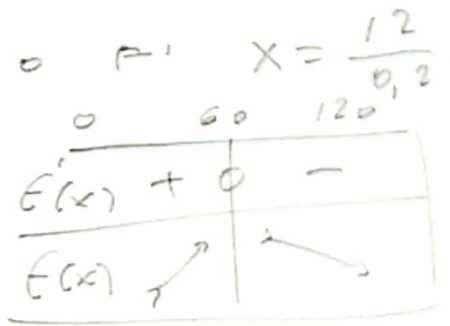 x = 12/0,2
0 60 120
E'(x) + 0 -
E(x) ↗ ↘